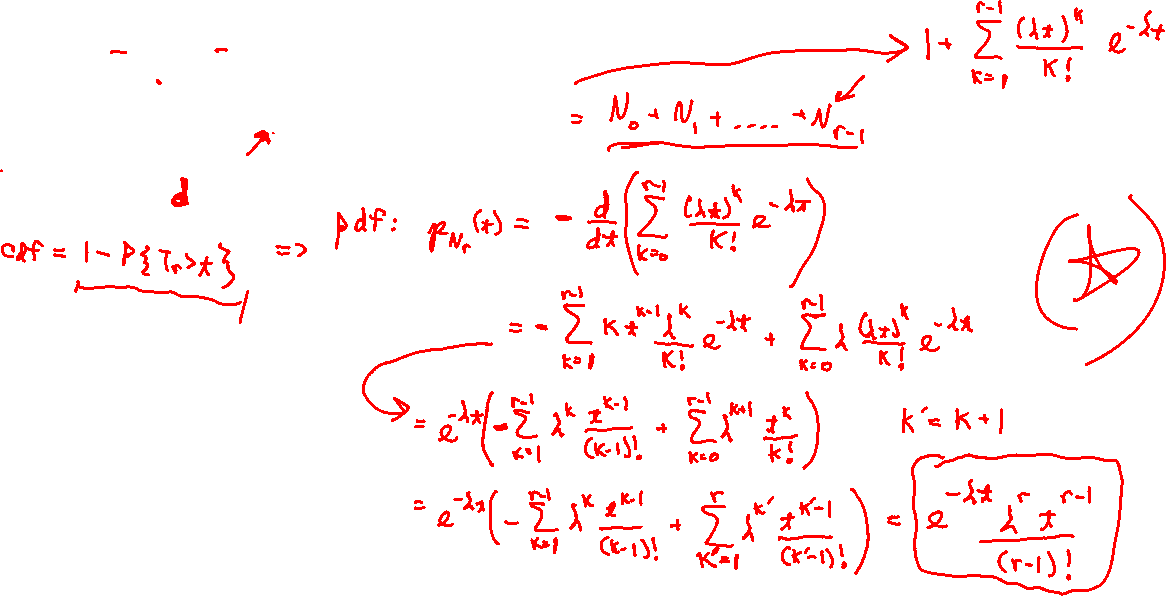 1 + \sum_{k=1}^{r-1} \frac{(λt)^k}{k!} e^{-λt}
= N_0 + N_1 + ..... + N_{r-1}
d
cdf = 1 - P{T_r > t} => pdf: p_{N_r}(t) = - \frac{d}{dt} ( \sum_{k=0}^{r-1} \frac{(λt)^k}{k!} e^{-λt} )
= - \sum_{k=1}^{r-1} k t^{k-1} \frac{λ^k}{k!} e^{-λt} + \sum_{k=0}^{r-1} λ \frac{(λt)^k}{k!} e^{-λt}
= e^{-λt} ( - \sum_{k=1}^{r-1} λ^k \frac{t^{k-1}}{(k-1)!} + \sum_{k=0}^{r-1} λ^{k+1} \frac{t^k}{k!} ) k' = k + 1
= e^{-λt} ( - \sum_{k=1}^{r-1} λ^k \frac{t^{k-1}}{(k-1)!} + \sum_{k'=1}^{r} λ^{k'} \frac{t^{k'-1}}{(k'-1)!} ) = e^{-λt} \frac{λ^r t^{r-1}}{(r-1)!}